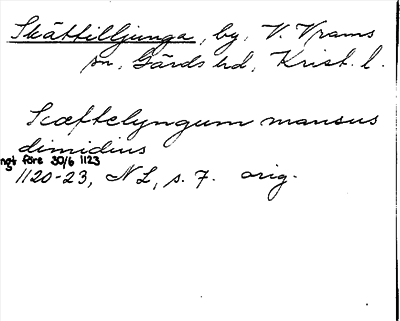 Skättilljunga, by, V. Vrams
sn, Gärds hd, Krist. l.
Scæftelyngum mansus
dimidius
ngt före 30/6 1123
1120-23, NL, s. 7. orig.